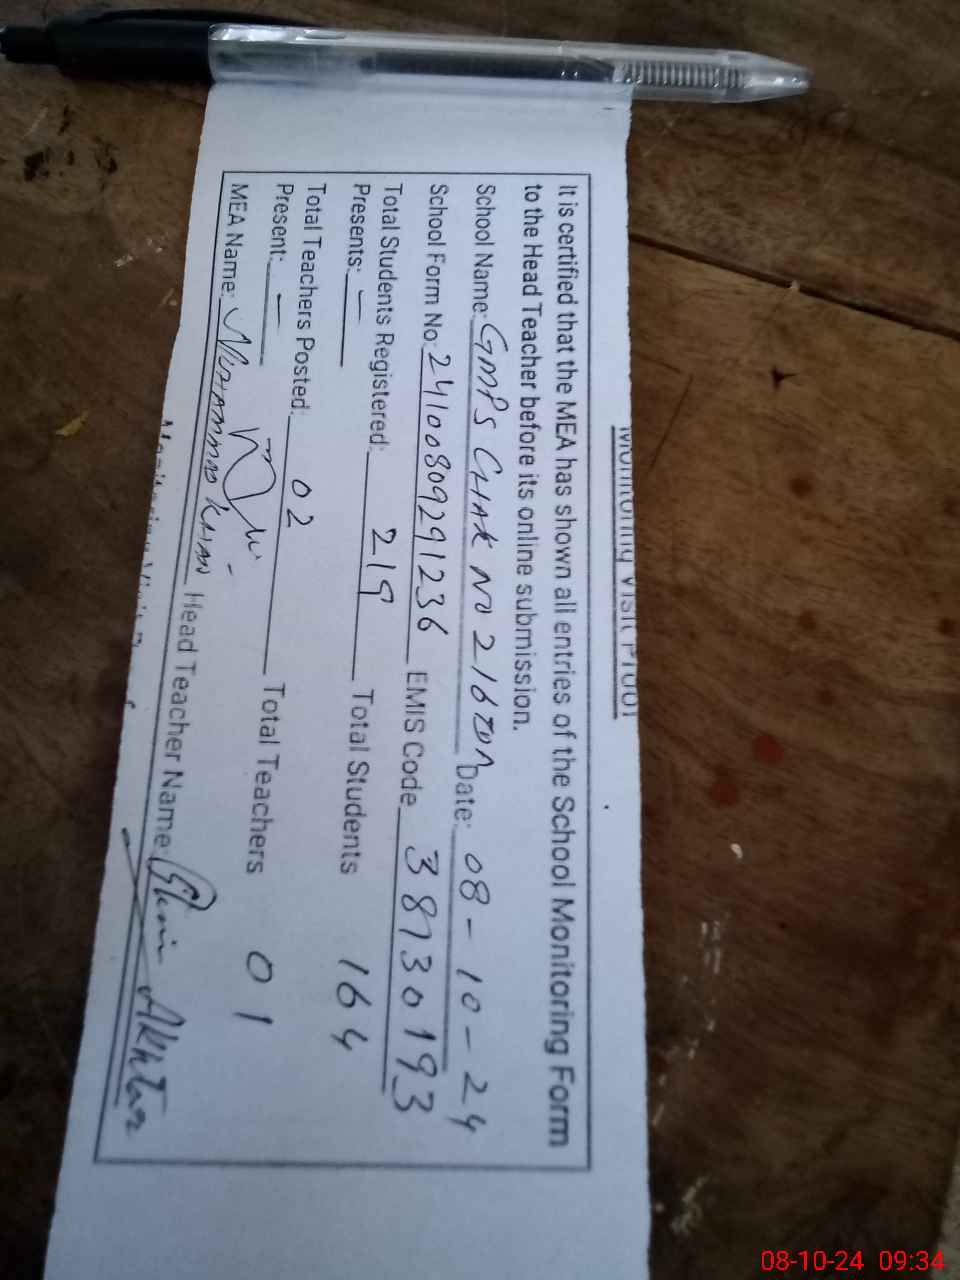 Monitoring Visit Proof
It is certified that the MEA has shown all entries of the School Monitoring Form
to the Head Teacher before its online submission.
School Name: GMPS CHAK NO 216 Date: 08-10-24
School Form No: 24100809291236 EMIS Code 38730193
Total Students Registered: 219 Total Students 164
Presents:
Total Teachers Posted: 02 Total Teachers 01
Present:
MEA Name: MUHAMMAD KHAN Head Teacher Name: Akhtar
08-10-24 09:34